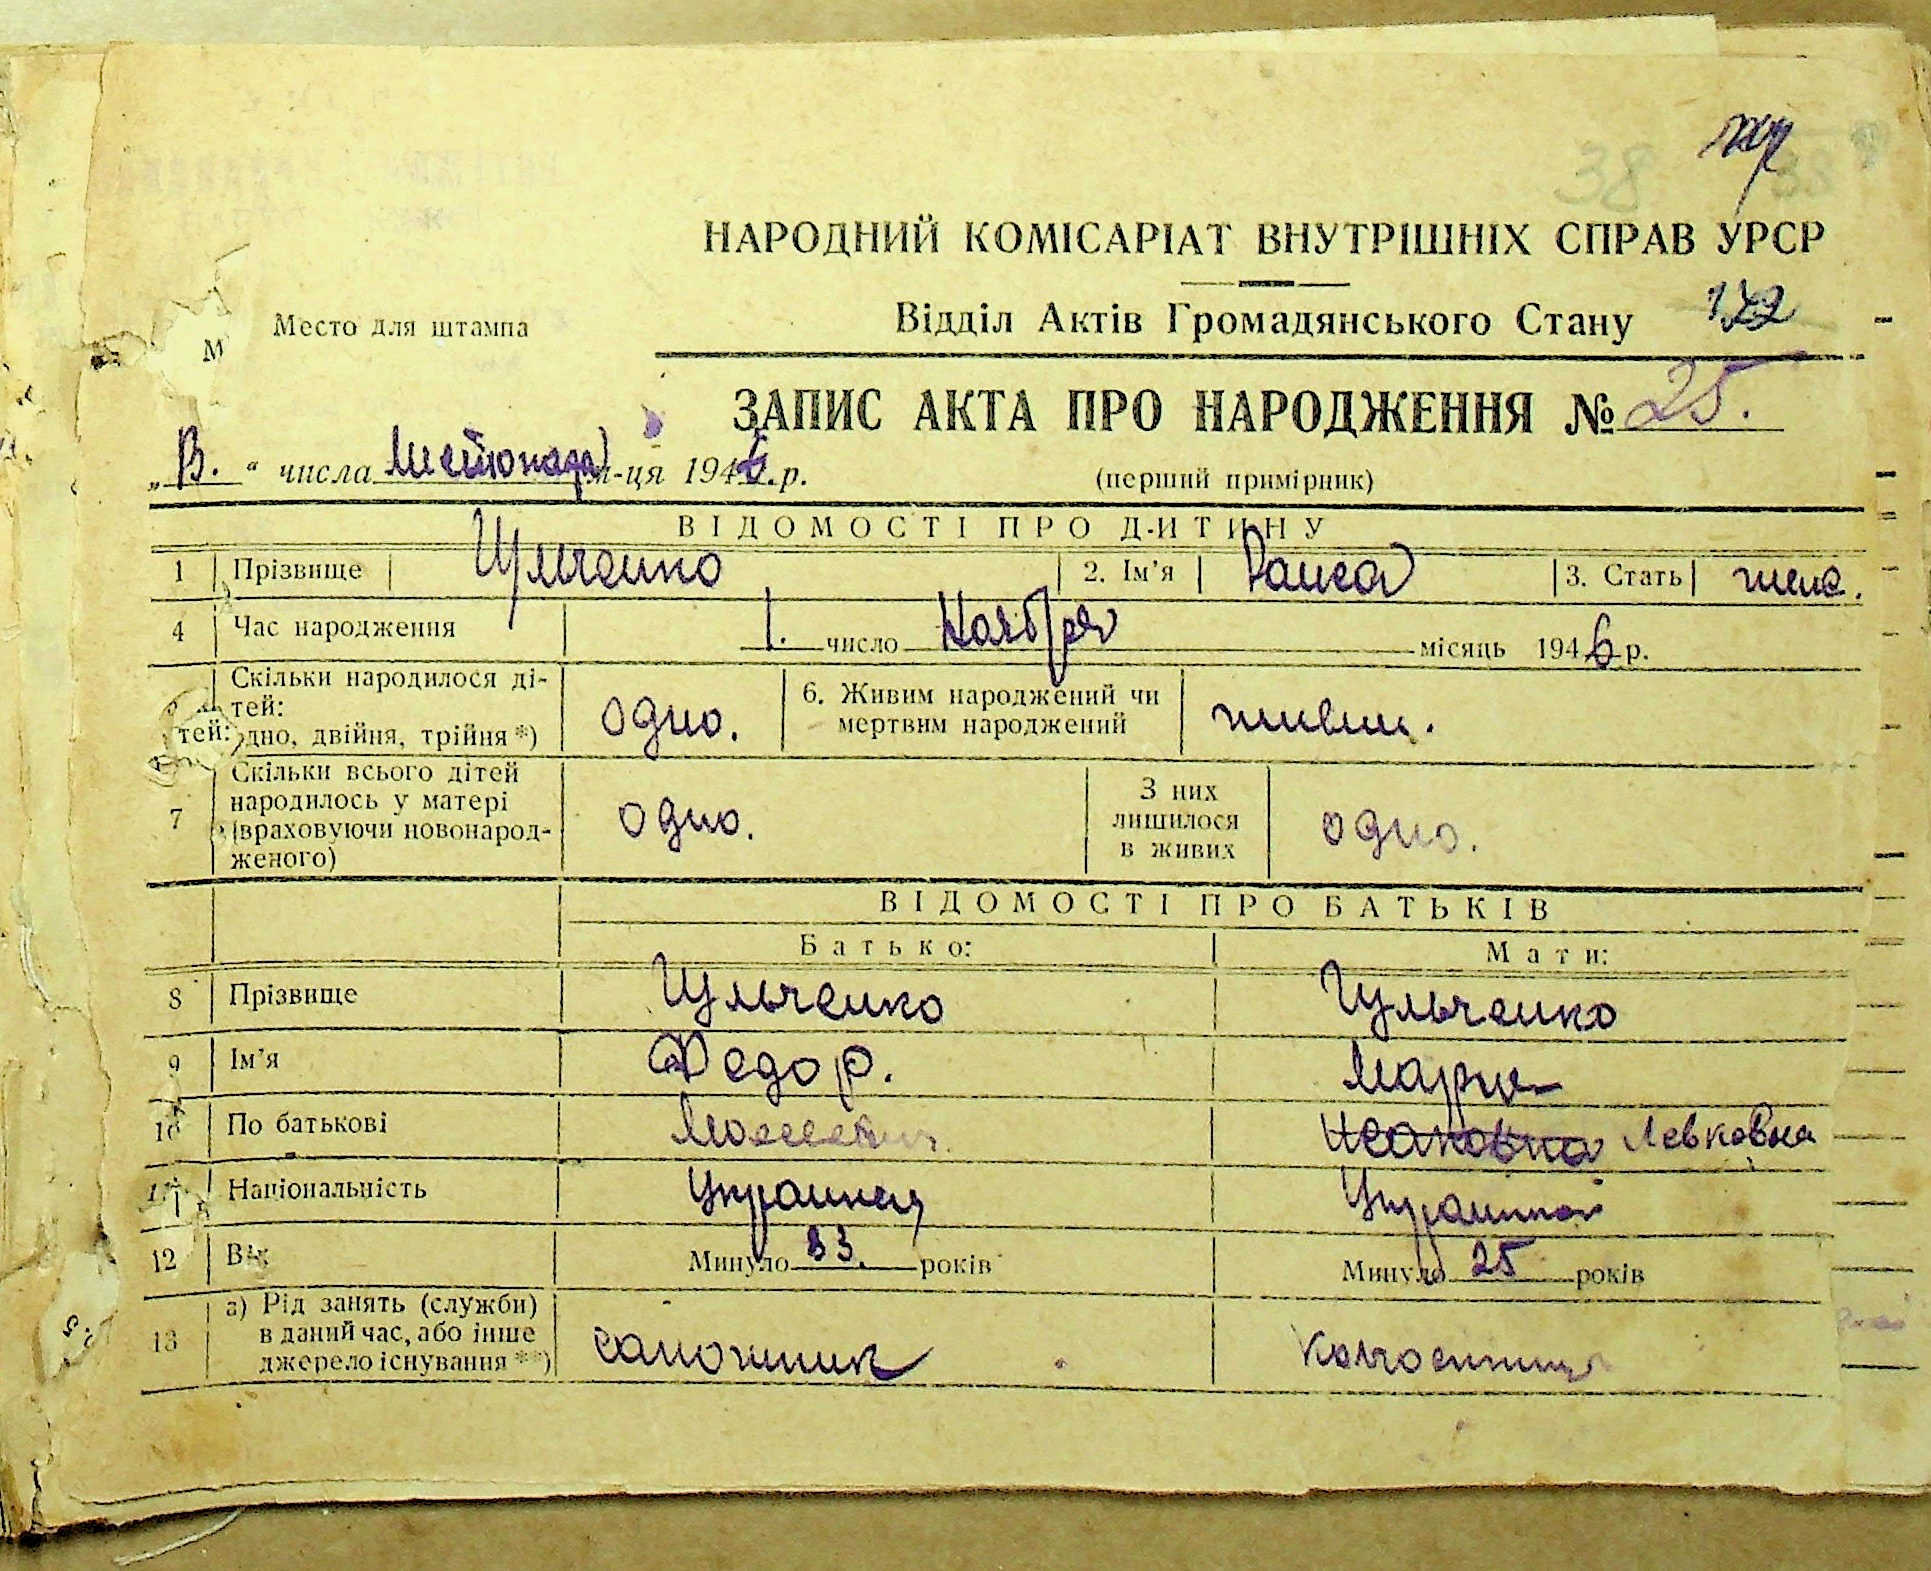 38
НАРОДНИЙ КОМІСАРІАТ ВНУТРІШНІХ СПРАВ УРСР
Место для штампа
Відділ Актів Громадянського Стану 122
ЗАПИС АКТА ПРО НАРОДЖЕННЯ № 25.
„В.“ числа Листопада м-ця 1946 р.
(перший примірник)
ВІДОМОСТІ ПРО ДИТИНУ
1 Прізвище Цульченко 2. Ім'я Раиса 3. Стать жен.
4 Час народження 1. число Ноября місяць 1946 р.
Скільки народилося ді-
тей:
дно, двійня, трійня *) одно. 6. Живим народжений чи
мертвим народжений живим.
7 Скільки всього дітей
народилось у матері
(враховуючи новонарод-
женого) одно. З них
лишилося
в живих одно.
ВІДОМОСТІ ПРО БАТЬКІВ
Батько: Мати:
8 Прізвище Цульченко Цульченко
9 Ім'я Федор. Мария
10 По батькові Моисеевич Исаковна Левковна
11 Національність Украинец Украинка
12 Вік Минуло 33. років Минуло 25 років
13 а) Рід занять (служби)
в даний час, або інше
джерело існування **) сапожник колхозница